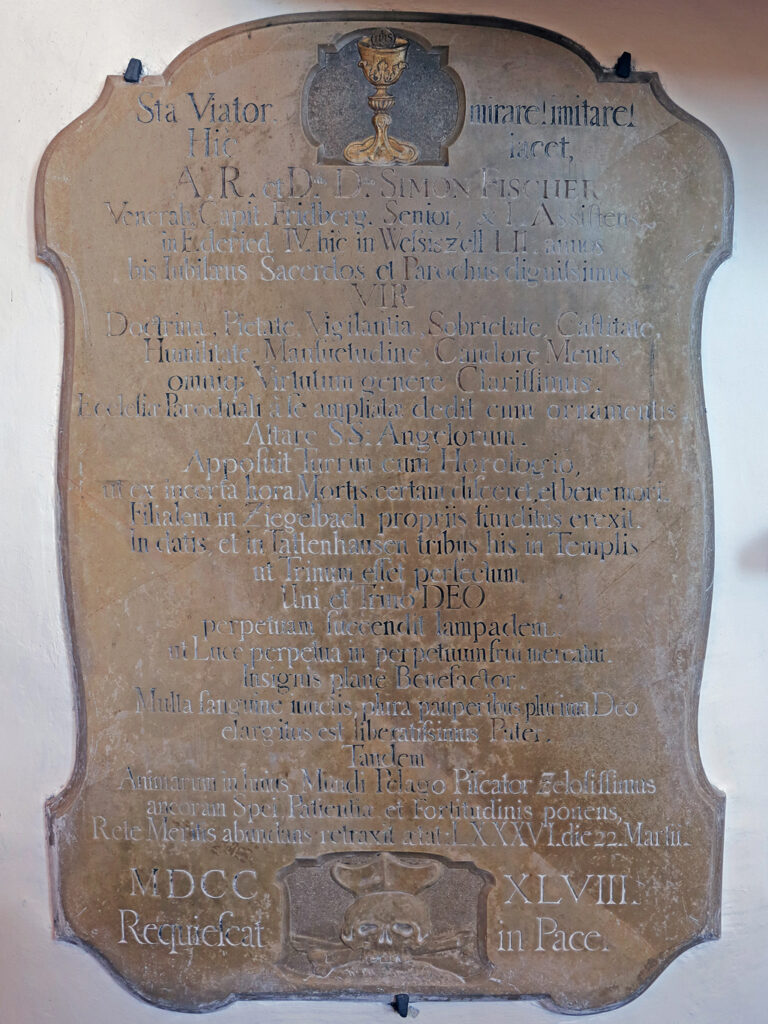 Sta Viator mirare! imitare!
Hic iacet,
A. R. et D. D. SIMON FISCHER
Venerab. Capit. Fridberg. Senior, & I. Assistens
in Ederied IV. hic in Wessiszell LII. annos
bis Iubilæus Sacerdos et Parochus dignissimus
VIR
Doctrina, Pietate, Vigilantia, Sobrietate, Castitate,
Humilitate, Mansuetudine, Candore Mentis,
omniq; Virtutum genere Clarissimus.
Ecclesiæ Parochiali à se ampliatæ dedit cum ornamentis
Altare S.S. Angelorum.
Apposuit Turrim cum Horologio,
ut ex incerta hora Mortis certam disceret, et bene mori.
Filialem in Ziegelbach propriis funditus erexit.
In datis, et in Tattenhausen tribus his in Templis
ut Trinum esset perfectum,
Uni et Trino DEO
perpetuam succendit lampadem.
ut Luce perpetua in perpetuum frui mereatur.
Insignis plane Benefactor.
Multa sanguine iunctis, plura pauperibus, plurima Deo
elargitus est liberalissimus Pater.
Tandem
Animarum in huius Mundi Pelago Piscator Zelosissimus
ancoram Spei, Patientiæ et Fortitudinis ponens,
Rete Meritis abundans retraxit ætat. LXXXVI. die 22. Martii.
MDCC XLVIII.
Requiescat in Pace.